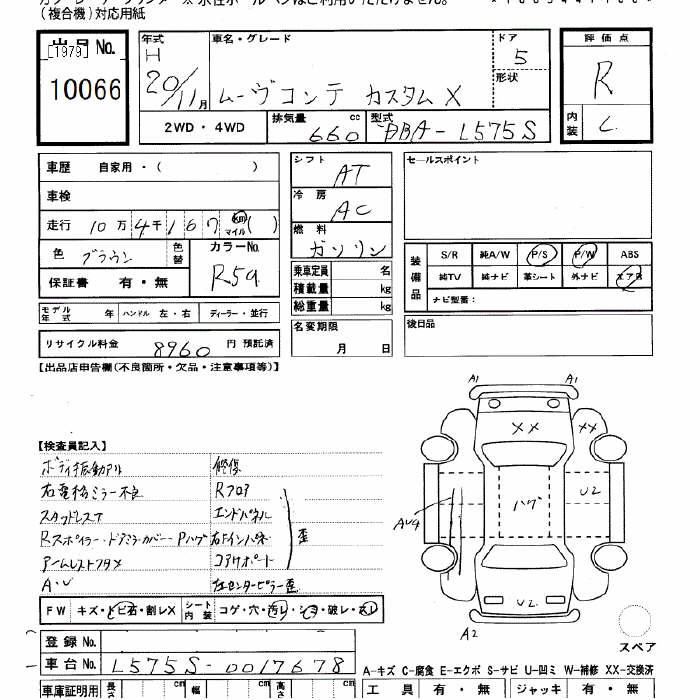 (複合機)対応用紙
出品No.
[1979]
10066
年式
H
20/11月
車名・グレード
ムーヴコンテ カスタムX
ドア
5
形状
評価点
R
内装
C
2WD・4WD
排気量 660 cc
型式 DBA-L575S
車歴 自家用・( )
車検
走行 10万4千167 km マイル ( )
色 ブラウン 色替
カラーNo. R59
保証書 有・無
モデル年式 年 ハンドル 左・右 ディーラー・並行
リサイクル料金 8960 円 預託済
シフト AT
冷房 AC
燃料 ガソリン
乗車定員 名
積載量 kg
総重量 kg
名変期限
月 日
セールスポイント
装備品
S/R 純A/W P/S P/W ABS
純TV 純ナビ 革シート 外ナビ エアB
ナビ型番:
後日品
【出品店申告欄(不良箇所・欠品・注意事項等)】
【検査員記入】
ボディ振動アリ
右電格ミラー不良
スタッドレスT
Rスポイラー・ドアミラーカバー・Pハゲ
アームレストフタメ
A・U
修復
Rフロア
エンドパネル
右Fインパネ
コアサポート
右センターピラー歪
歪
FW キズ・トビ石・割レX シート内装 コゲ・穴・汚レ・シミ・破レ・スレ
登録No.
車台No. L575S-0017678
車庫証明用 長さ cm 幅 cm 高さ cm
A1
A1
XX
XX
ハゲ
U2
AU4
U2
A2
スペア
A-キズ C-腐食 E-エクボ S-サビ U-凹ミ W-補修 XX-交換済
工具 有・無 ジャッキ 有・無